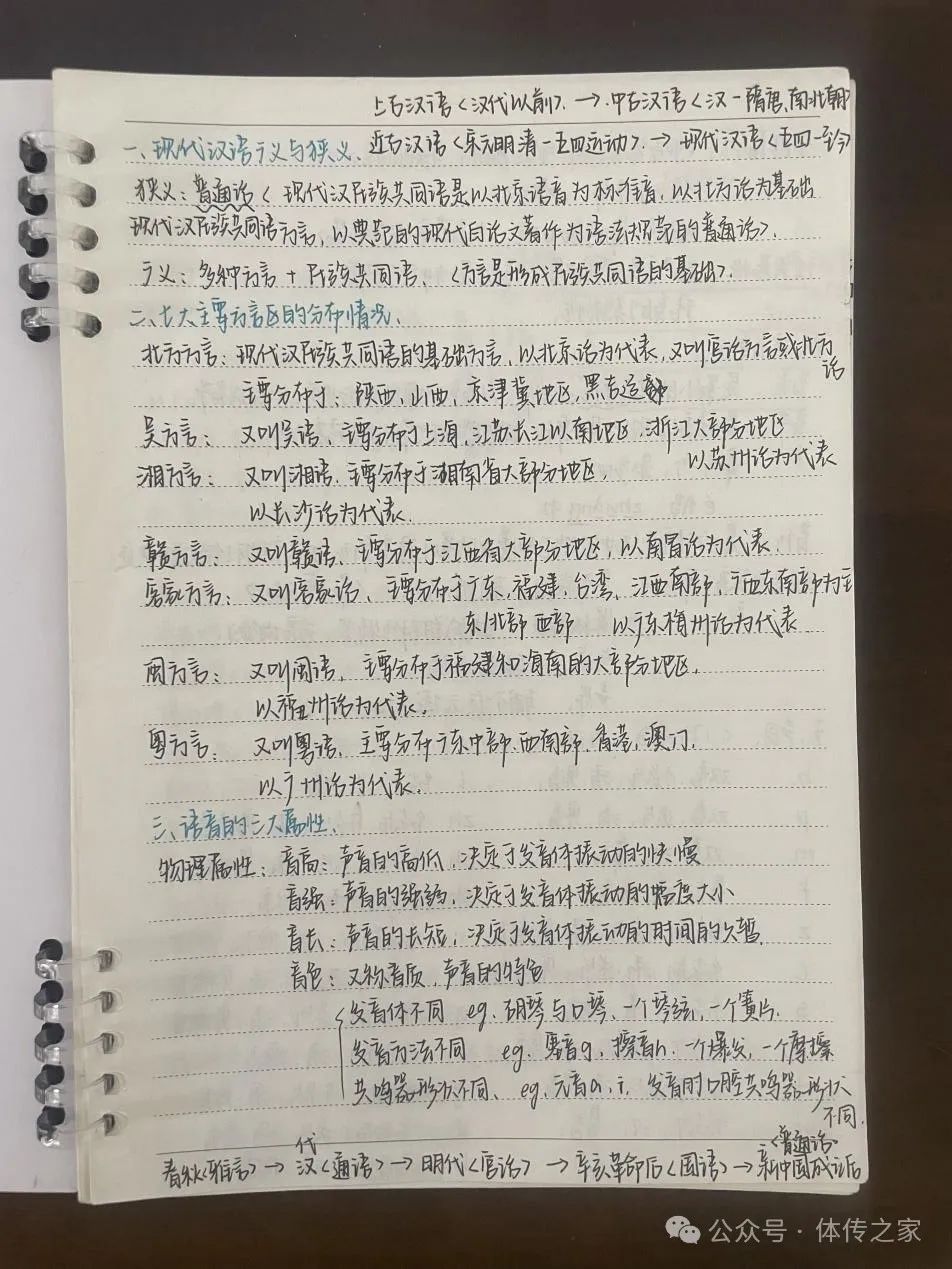 上古汉语<汉代以前>. → 中古汉语<汉-隋唐、南北朝>
近古汉语<宋元明清-五四运动>. → 现代汉语<五四-至今>
一、现代汉语广义与狭义、
狭义：普通话< 现代汉民族共同语是以北京语音为标准音，以北方话为基础
现代汉民族共同语方言，以典范的现代白话文著作为语法规范的普通话>.
广义：多种方言 + 民族共同语、<方言是形成民族共同语的基础>.
二、七大主要方言区的分布情况、
北方方言：现代汉民族共同语的基础方言，以北京话为代表，又叫官话方言或北方
话
主要分布于：陕西，山西，京津冀地区，黑吉辽
吴方言： 又叫吴语，主要分布于上海，江苏长江以南地区，浙江大部分地区
以苏州话为代表
湘方言： 又叫湘语、主要分布于湖南省大部分地区、
以长沙话为代表.
赣方言： 又叫赣语、主要分布于江西省大部分地区，以南昌话为代表.
客家方言： 又叫客家话、主要分布于广东、福建，台湾、江西南部，广西东南部为主
东北部 西部 以广东梅州话为代表
闽方言： 又叫闽语、主要分布于福建和海南的大部分地区.
以福州话为代表.
粤方言： 又叫粤语、主要分布于广东中部、西南部、香港，澳门.
以广州话为代表.
三、语音的三大属性、
物理属性：音高：声音的高低，决定于发音体振动的快慢
音强：声音的强弱，决定于发音体振动的幅度大小
音长：声音的长短，决定于发音体振动的时间的久暂.
音色：又称音质，声音的特色
发音体不同 eg. 胡琴与口琴、一个琴弦，一个簧片.
发音方法不同 eg. 塞音g，擦音h. 一个爆发，一个摩擦
共鸣器形状不同、eg. 元音a，i. 发音时口腔共鸣器形状
不同.
春秋<雅言> → 汉代<通语> → 明代<官话> → 辛亥革命后<国语> → 新中国成立后
<普通话>
公众号 · 体传之家